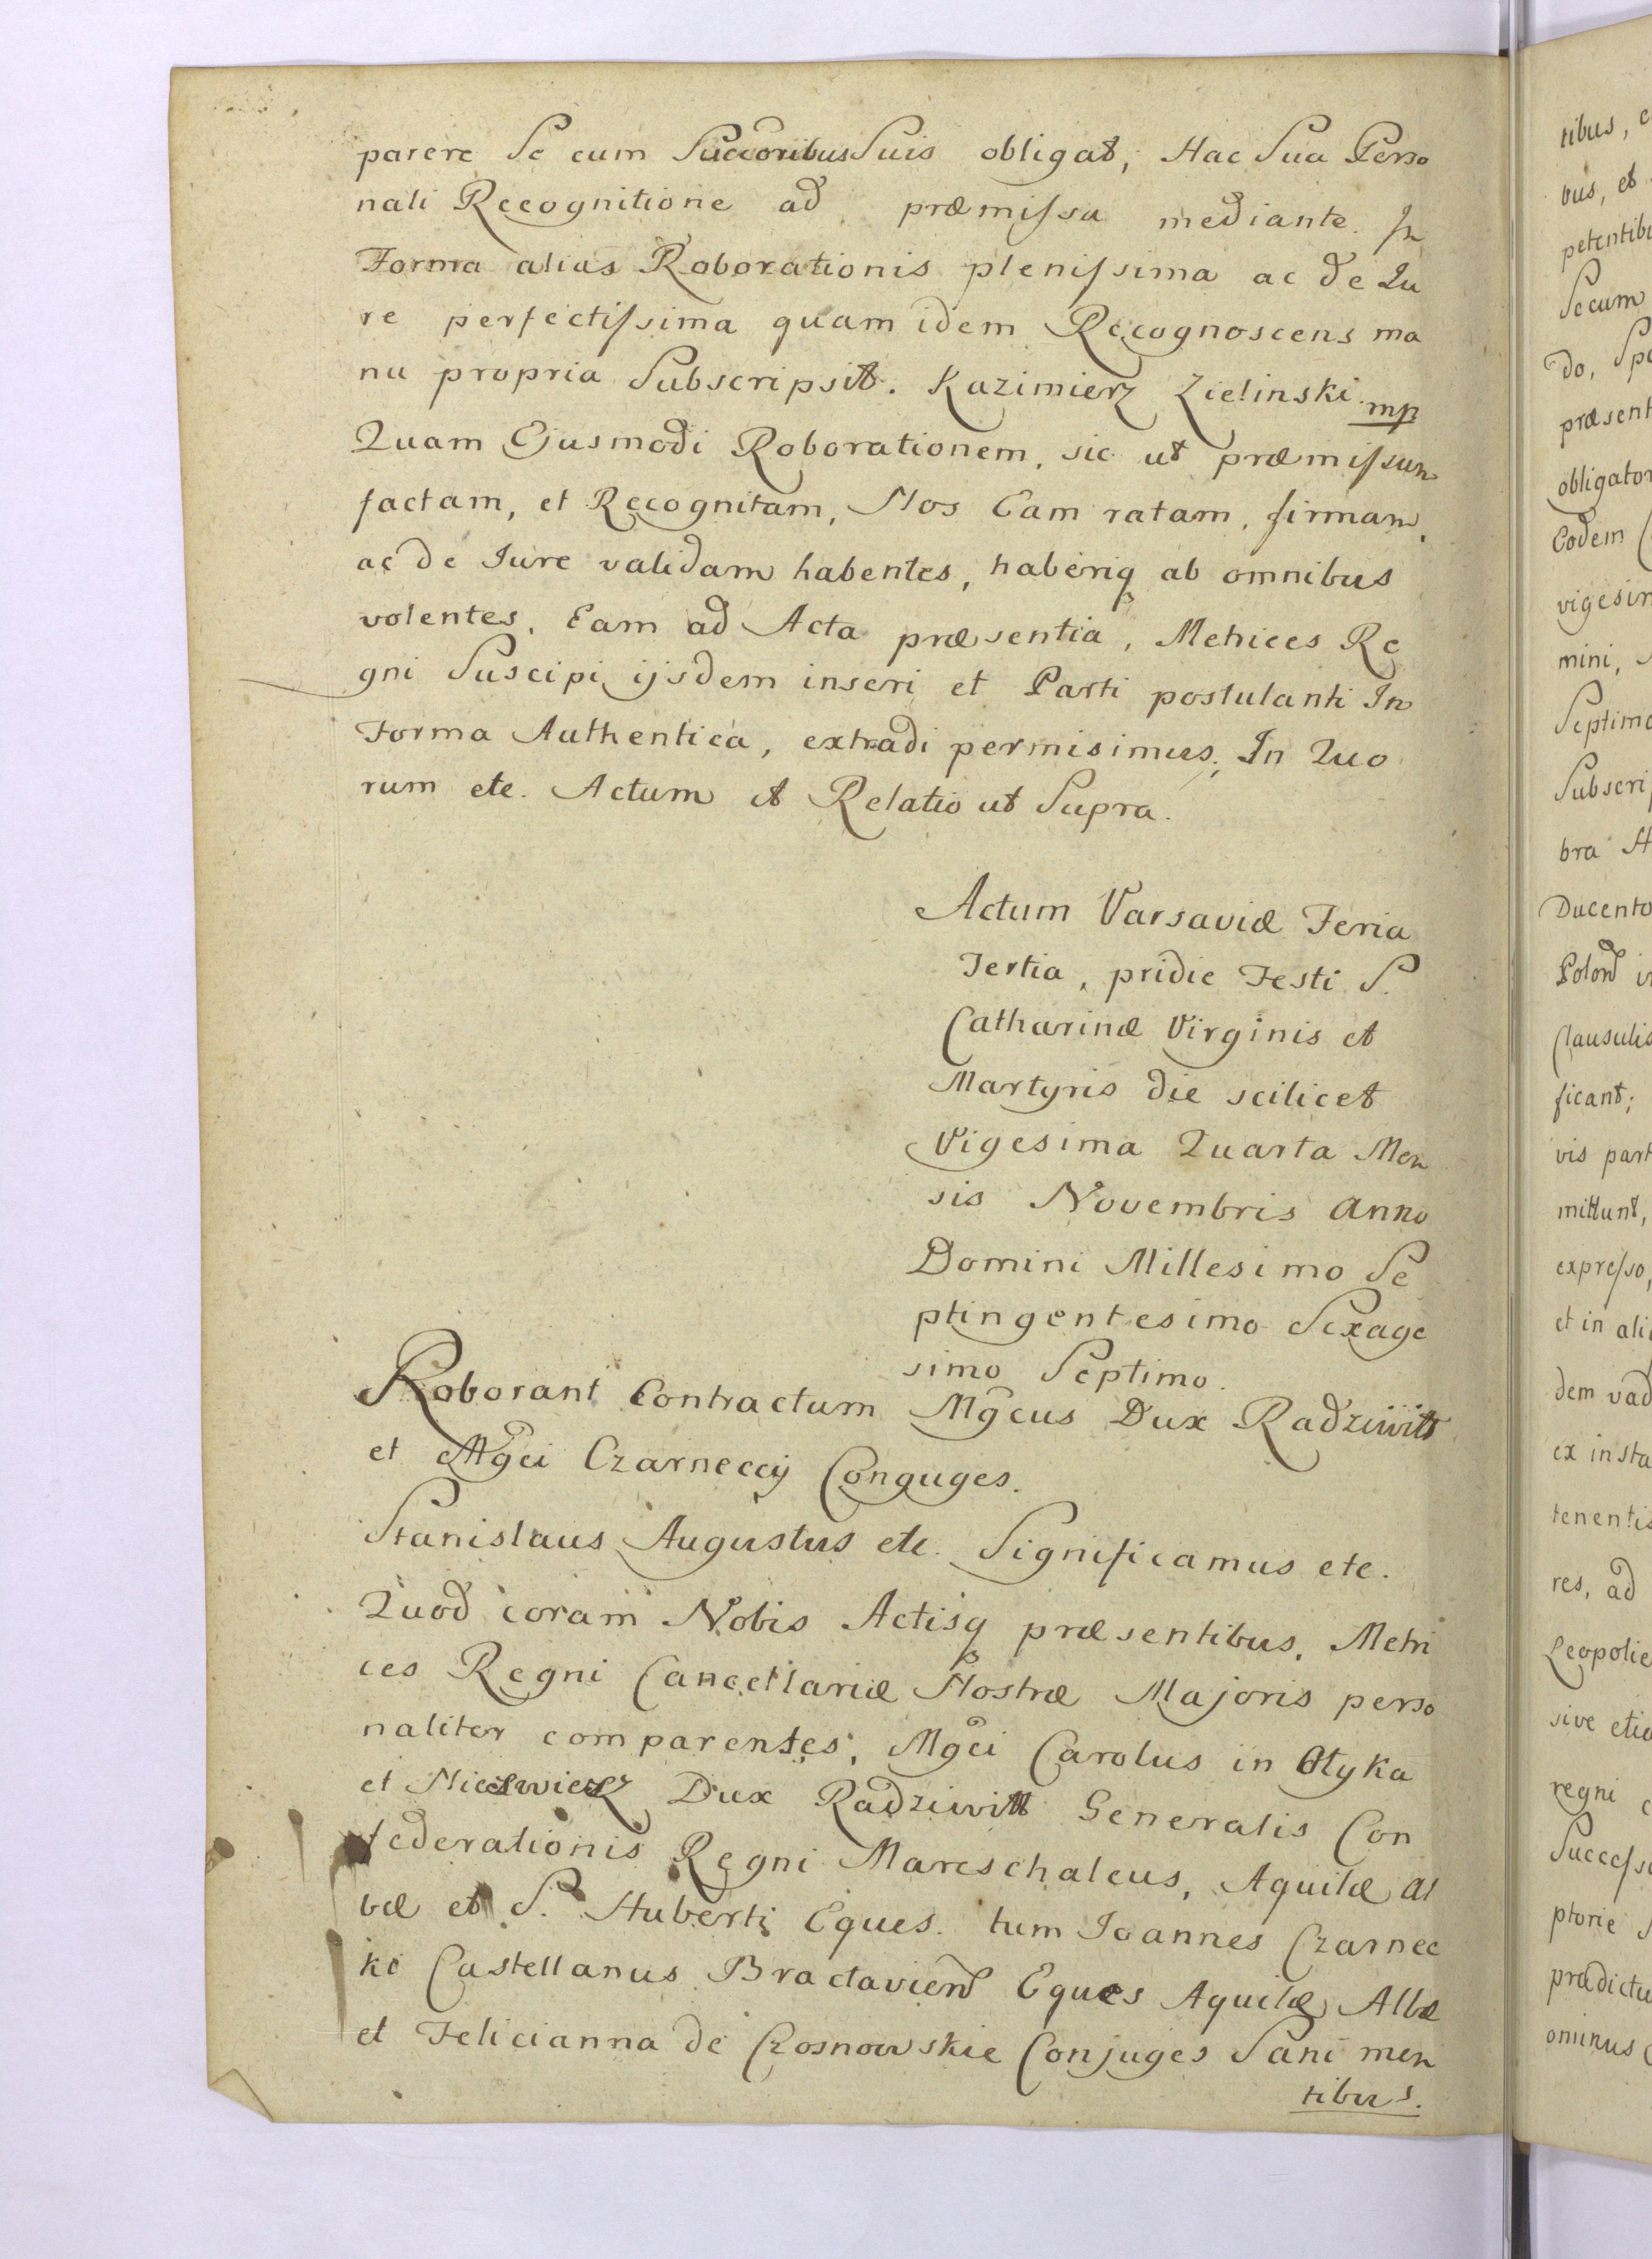 parere Se cum Succoribus Suis obligat, Hac Sua Perso
nali Recognitione ad præmissa mediante. In
Forma alias Roborationis plenissima ac de Ju
re perfectissima quam idem Recognoscens ma
nu propria Subscripsit. Kazimierz Zielinski mp
Quam Ejusmodi Roborationem, sic ut præmissum
factam, et Recognitam, Nos Eam ratam, firmam,
ac de Jure validam habentes, haberiq ab omnibus
volentes, Eam ad Acta præsentia, Metrices Re
gni Suscipi ijsdem inseri et Parti postulanti In
Forma Authentica, extradi permisimus; In Quo
rum etc. Actum et Relatio ut Supra.
Actum Varsaviæ Feria
Tertia, pridie Festi S.
Catharinæ Virginis et
Martyris die scilicet
Vigesima Quarta Men
sis Novembris Anno
Domini Millesimo Se
ptingentesimo Sexage
simo Septimo.
Roborant Contractum Mgcus Dux Radziwiłł
et Mgci Czarneccij Conjuges.
Stanislaus Augustus etc. Significamus etc.
Quod coram Nobis Actisq præsentibus, Metri
ces Regni Cancellariæ Nostræ Majoris perso
naliter comparentes, Mgci Carolus in Ołyka
et Nieswiesz Dux Radziwiłł Generalis Con
federationis Regni Mareschalcus, Aquilæ Al
bæ et S. Huberti Eques. tum Joannes Czarnec
ki Castellanus Bractavien Eques Aquilæ Albæ
et Felicianna de Czosnowskie Conjuges Sani men
tibus.
tibus,
bus, et
petentibu
Secum
do,
præsent
obligator
Eodem
vigesim
mini,
Septimo
Subscrip
bra
Ducento
Polon
Clausulis
ficant;
vis part
mittunt,
expresso,
et in ali
dem vad
ex insta
tenentis
res, ad
Leopolie
sive etia
regni
Successo
ptorie
prædictu
ominus